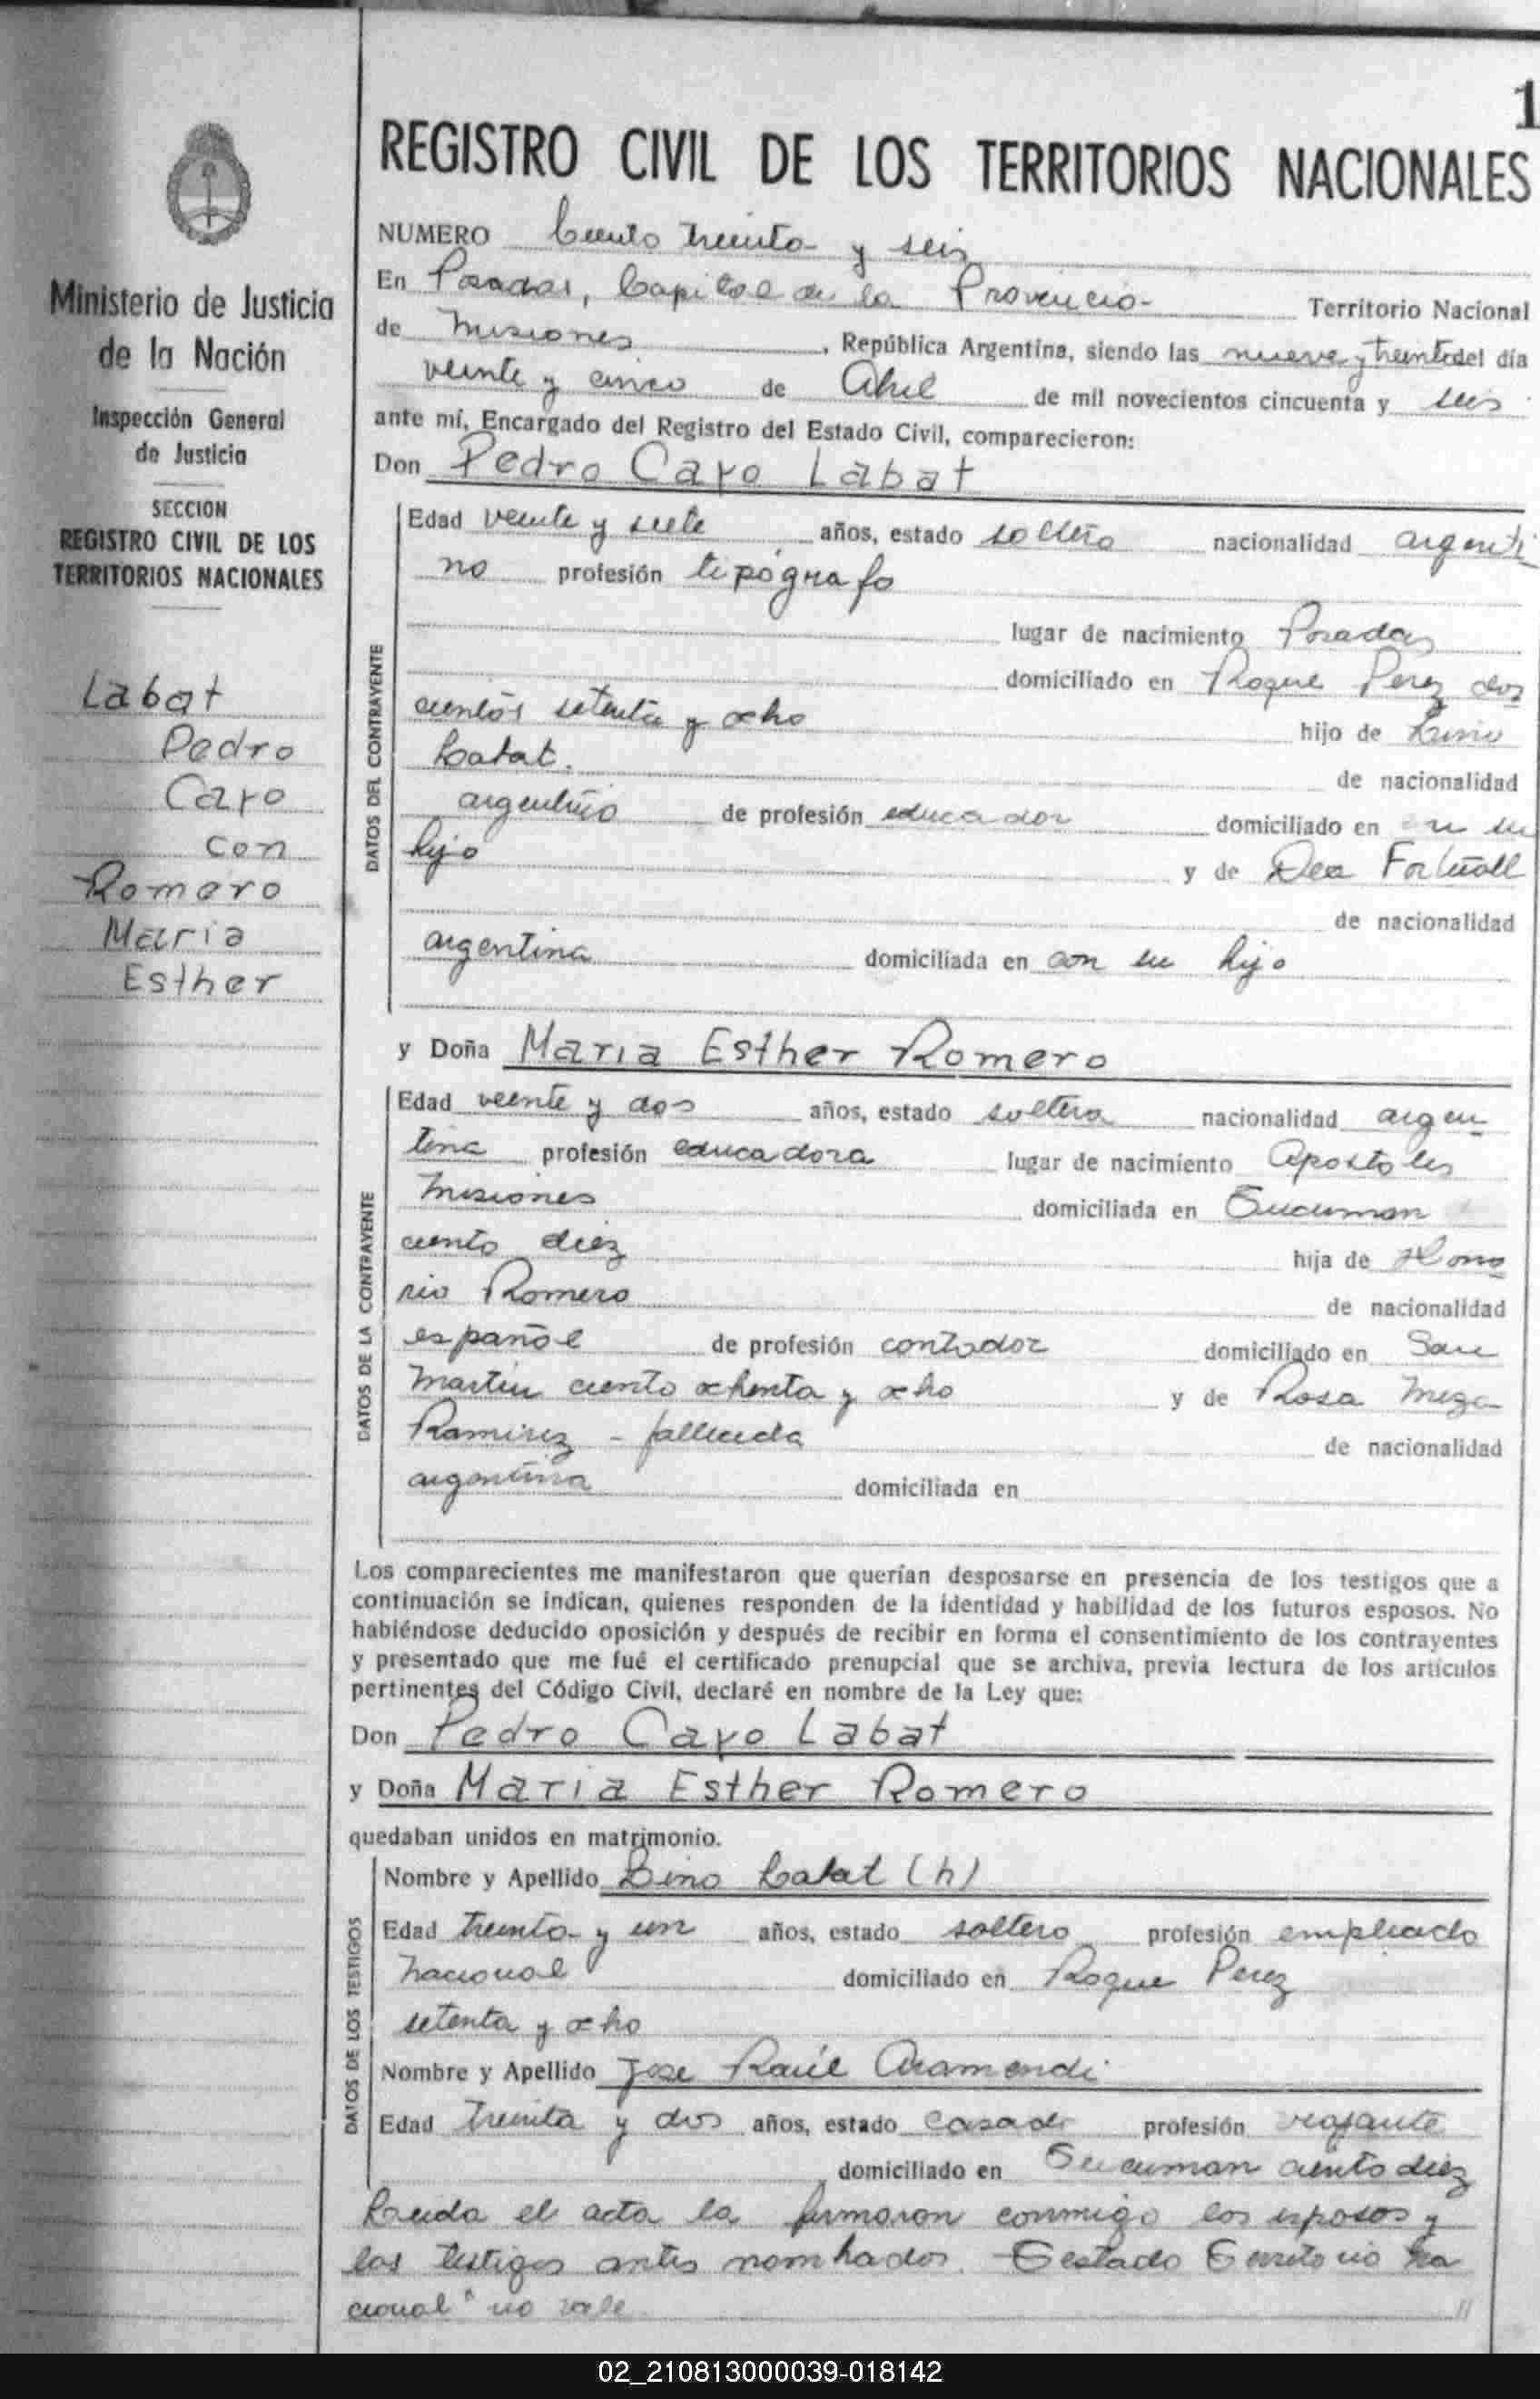 1
REGISTRO CIVIL DE LOS TERRITORIOS NACIONALES
Ministerio de Justicia
de la Nación
Inspección General
de Justicia
SECCION
REGISTRO CIVIL DE LOS
TERRITORIOS NACIONALES
Labat
Pedro
Cayo
con
Romero
Maria
Esther
NUMERO Ciento treinta y seis
En Posadas, Capital de la Provincia Territorio Nacional
de Misiones, República Argentina, siendo las nueve y treinta del día
veinte y cinco de Abril de mil novecientos cincuenta y seis
ante mí, Encargado del Registro del Estado Civil, comparecieron:
Don Pedro Cayo Labat
DATOS DEL CONTRAYENTE
Edad veinte y siete años, estado soltero nacionalidad argenti
no profesión tipógrafo
lugar de nacimiento Posadas
domiciliado en Roque Perez dos
cientos setenta y ocho hijo de
Labat. de nacionalidad
argentino de profesión educador domiciliado en su
hijo y de
de nacionalidad
argentina domiciliada en con su hijo
y Doña Maria Esther Romero
DATOS DE LA CONTRAYENTE
Edad veinte y dos años, estado soltera nacionalidad argen
tina profesión educadora lugar de nacimiento Apostoles
Misiones domiciliada en Tucuman
ciento diez hija de Hono
rio Romero de nacionalidad
español de profesión contador domiciliado en San
Martin ciento ochenta y ocho y de Rosa
Ramirez - fallecida de nacionalidad
argentina domiciliada en
Los comparecientes me manifestaron que querían desposarse en presencia de los testigos que a
continuación se indican, quienes responden de la identidad y habilidad de los futuros esposos. No
habiéndose deducido oposición y después de recibir en forma el consentimiento de los contrayentes
y presentado que me fué el certificado prenupcial que se archiva, previa lectura de los artículos
pertinentes del Código Civil, declaré en nombre de la Ley que:
Don Pedro Cayo Labat
y Doña Maria Esther Romero
quedaban unidos en matrimonio.
DATOS DE LOS TESTIGOS
Nombre y Apellido Labat (h)
Edad treinta y un años, estado soltero profesión empleado
nacional domiciliado en Roque Perez
setenta y ocho
Nombre y Apellido Jose Raúl Aramendi
Edad treinta y dos años, estado casado profesión viajante
domiciliado en Tucuman ciento diez
Leida el acta la firmaron conmigo los esposos y
los testigos antes nombrados. Testado Territorio Na
cional" no vale //
02_210813000039-018142